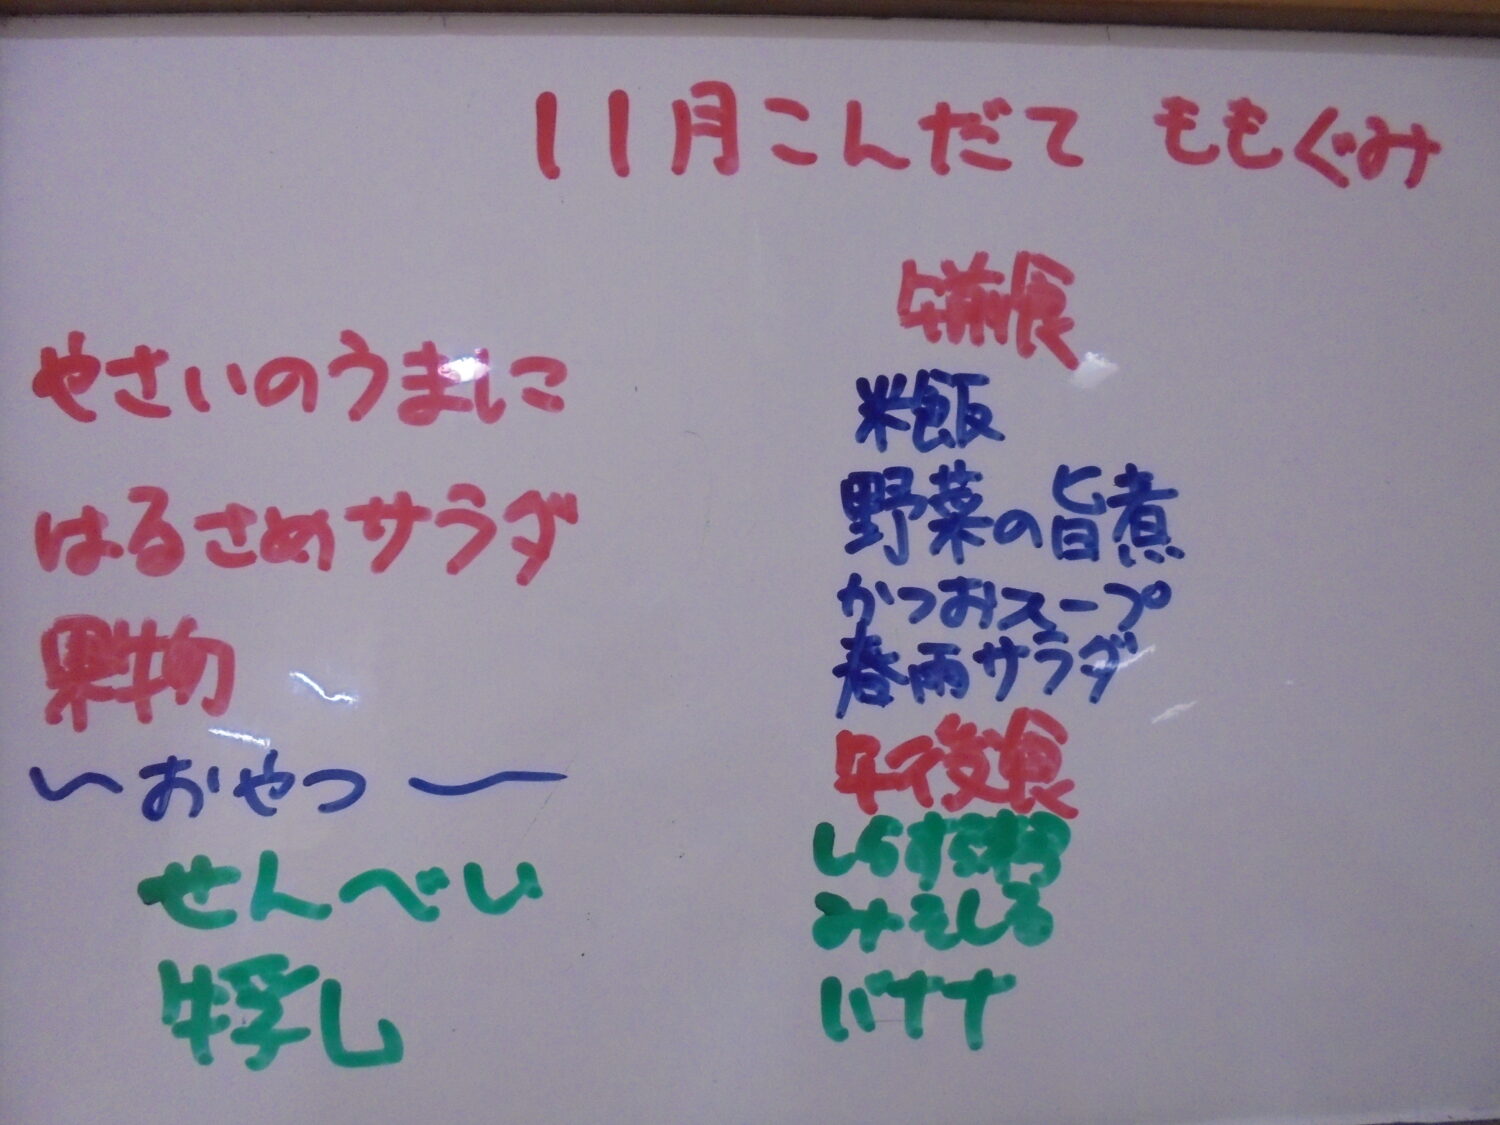 11月こんだて ももぐみ
やさいのうまに
はるさめサラダ
果物
〜おやつ〜
せんべい
牛乳
午前食
米飯
野菜の旨煮
かつおスープ
春雨サラダ
午後食
しらす
みそしる
バナナ